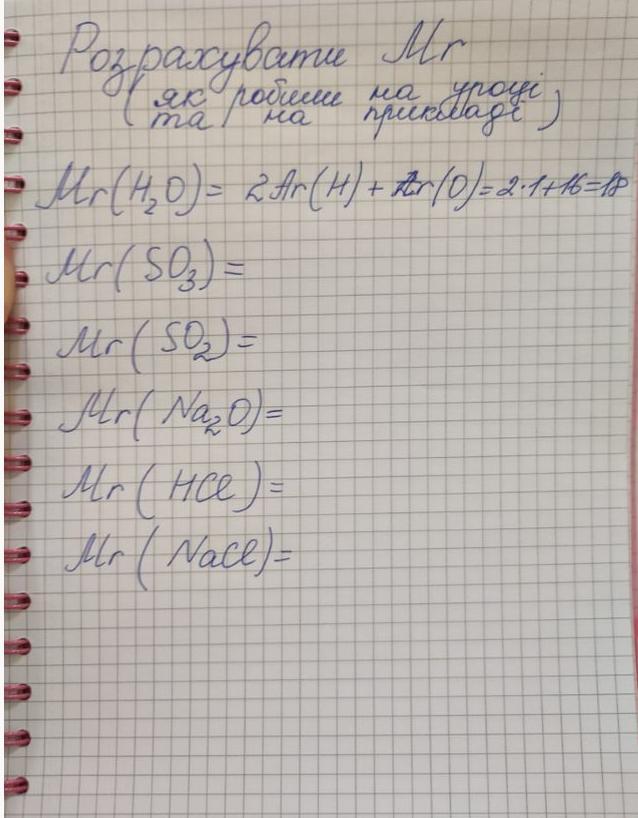 Розрахувати Mr
(як робили на уроці
та на прикладі)
Mr(H₂O)= 2Ar(H)+Ar(O)=2·1+16=18
Mr(SO₃)=
Mr(SO₂)=
Mr(Na₂O)=
Mr(HCl)=
Mr(NaCl)=